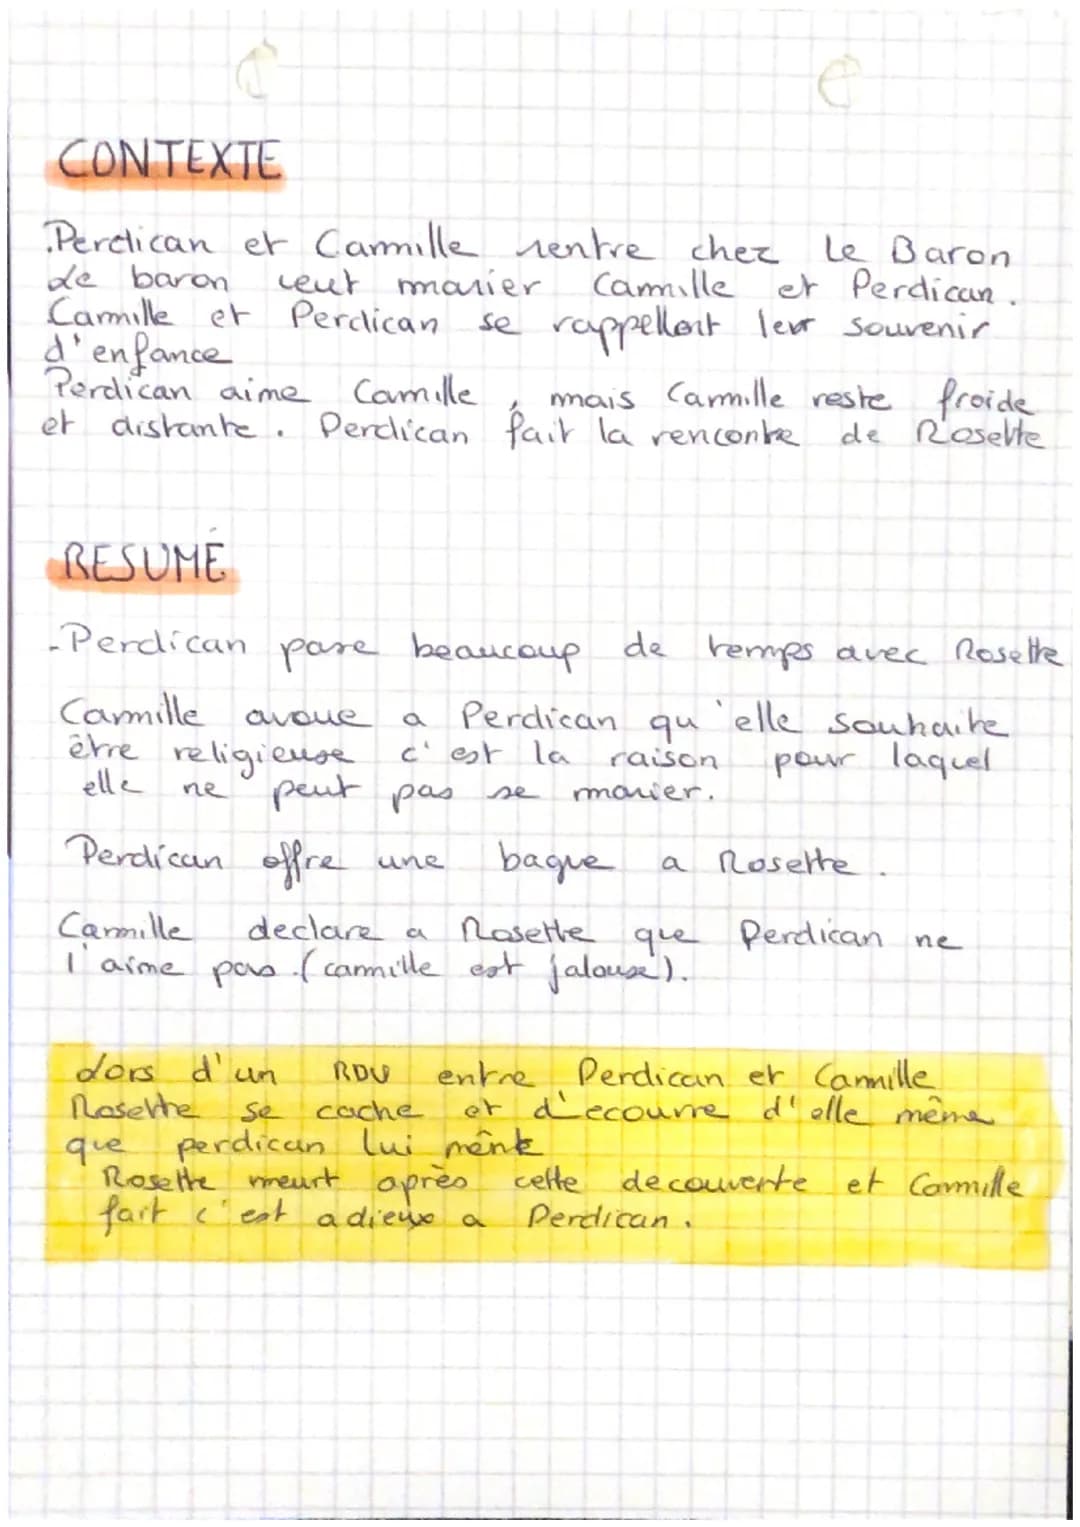 CONTEXTE
.Perdican et Camille rentre chez le Baron
Le baron veut marier Camille et Perdican.
Camille et Perdican se rappellent leur souvenir
d'enfance
Perdican aime Camille, mais Camille reste froide
et distante. Perdican fait la rencontre de Rosette
RESUMÉ
-Perdican passe beaucoup de temps avec Rosette
Camille avoue a Perdican qu'elle souhaite
être religieuse c'est la raison pour laquel
elle ne peut pas se marier.
Perdican offre une bague a Rosette.
Camille declare a Rosette que Perdican ne
l'aime pas. (camille est jalouse).
Lors d'un RDV entre Perdican et Camille
Rosette se cache et d'ecouvre d'elle même
que perdican lui ment
Rosette meurt après cette decouverte et Camille
fait c'est adieux a Perdican.